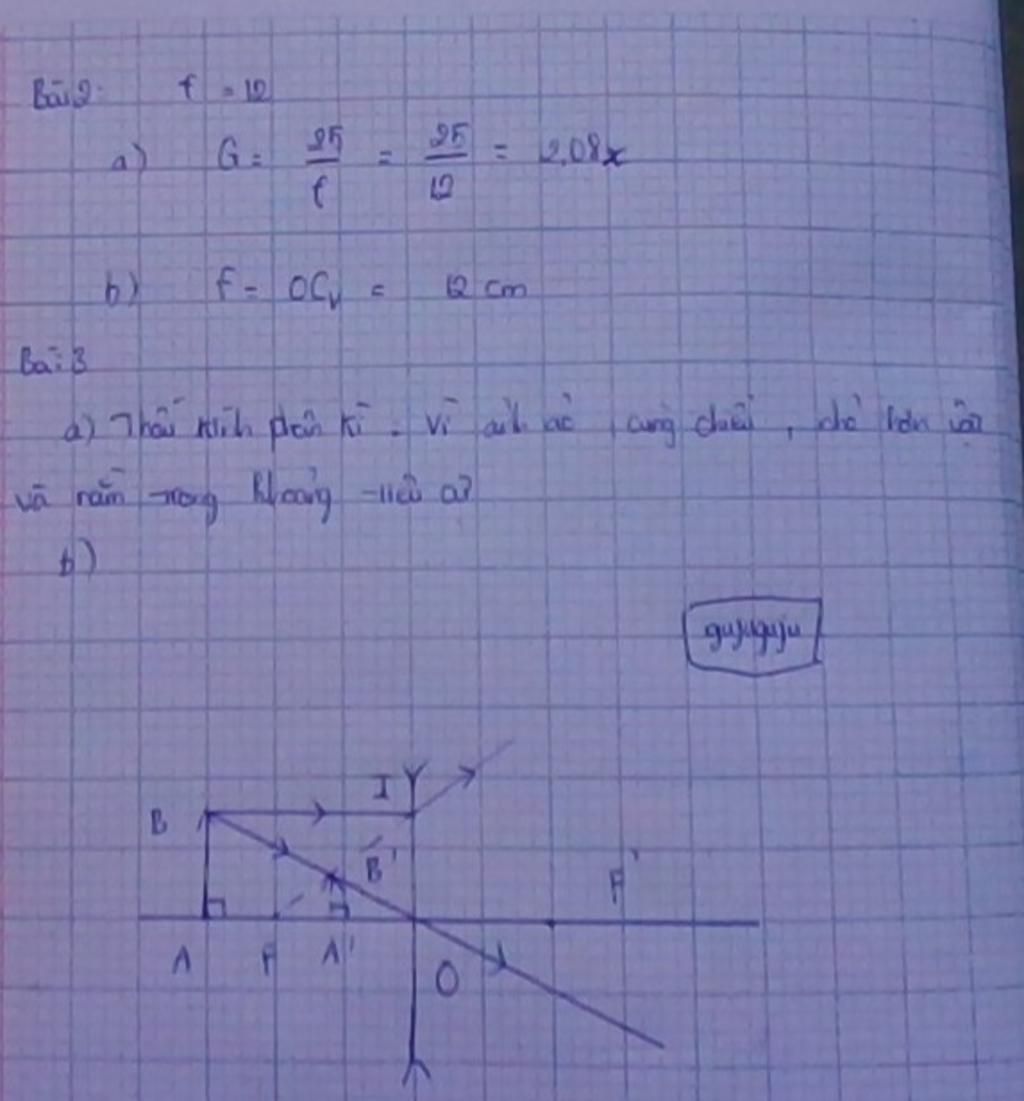 Bài 2: f = 12
a) G = 25/f = 25/12 = 2,08x
b) f = OCv = 12 cm
Bài 3
a) Thấu kính phân kì. Vì ảnh ảo, cùng chiều, nhỏ hơn vật
và nằm trong khoảng tiêu cự
b)
gujuguju
I
B B' F'
A F A' O